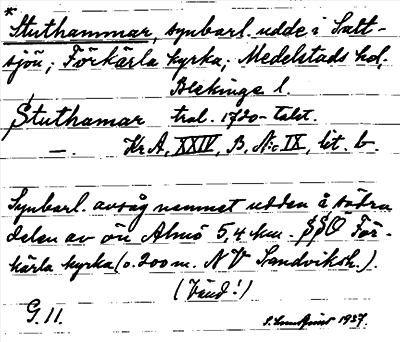 * Stuthammar, synbarl. udde i Salt-
sjön; Förkärla kyrka; Medelstads hd,
Blekinge l.
Stuthamar trol. 1720-talet.
—.— Kr. A. XXIV, B. N:o IX, lit. b.
Synbarl. avsåg namnet udden å södra
delen av ön Almö 5,4 km. SSO För-
kärla kyrka (o. 200 m. NV Sandviksh.).
(Vänd!)
G. 11. S. 1937.